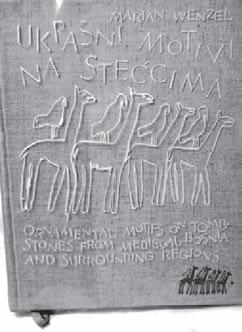 MARIAN WENZEL
UKRAŠNI MOTIVI
NA STEĆCIMA
ORNAMENTAL MOTIFS ON TOMB-
STONES FROM MEDIEVAL BOSNIA
AND SURROUNDING REGIONS